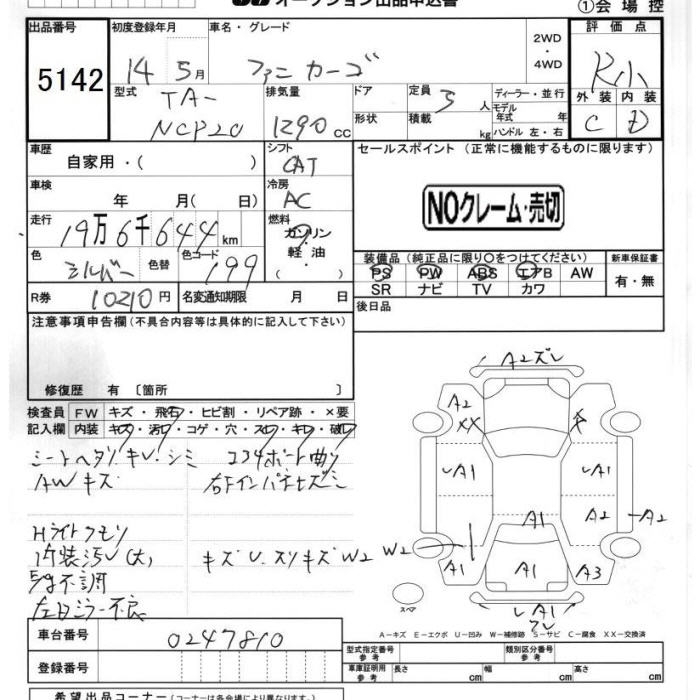 オークション出品申込書
①会場控
出品番号 初度登録年月 車名・グレード 評価点
5142 14 5月 ファンカーゴ 2WD ・4WD R小
型式 排気量 ドア 定員 5人 ディーラー・並行 外装 内装
TA- NCP20 1290cc 形状 積載 kg モデル年式 年 C D
ハンドル 左・右
車歴 シフト セールスポイント (正常に機能するものに限ります)
自家用・( ) CAT
車検 冷房
年 月( 日) AC NOクレーム・売切
走行 燃料
19万6千644km ガソリン・軽油・( )
色 シルバー 色替 色コード 199
装備品 (純正品に限り○をつけてください) 新車保証書
PS PW ABS エアB AW 有・無
SR ナビ TV カワ
R券 10210円 名変通知期限 月 日
後日品
注意事項申告欄 (不具合内容等は具体的に記入して下さい)
修復歴 有 〔箇所 〕
検査員 FW キズ・飛石・ヒビ割・リペア跡・×要
記入欄 内装 キズ・汚レ・コゲ・穴・スレ・キレ・破レ
シートヘタリ.キレ.シミ コアサポート曲り
AWキズ 右Fインパネヒズミ
Hライトクモリ
内装汚レ(大) キズU.スリキズW2
不調
左ドミラー不良
A2ズレ
A2 XX X
A1 A1
A1 A2 A2
W2
A1 A1 A3
A1
ズレ
スペア
A-キズ E-エクボ U-凹み W-補修跡 S-サビ C-腐食 XX-交換済
車台番号 0247810
型式指定番号 参考 類別区分番号 参考
登録番号 車庫証明用 参考 長さ cm 幅 cm 高さ cm
希望出品コーナー (コーナーは各会場により